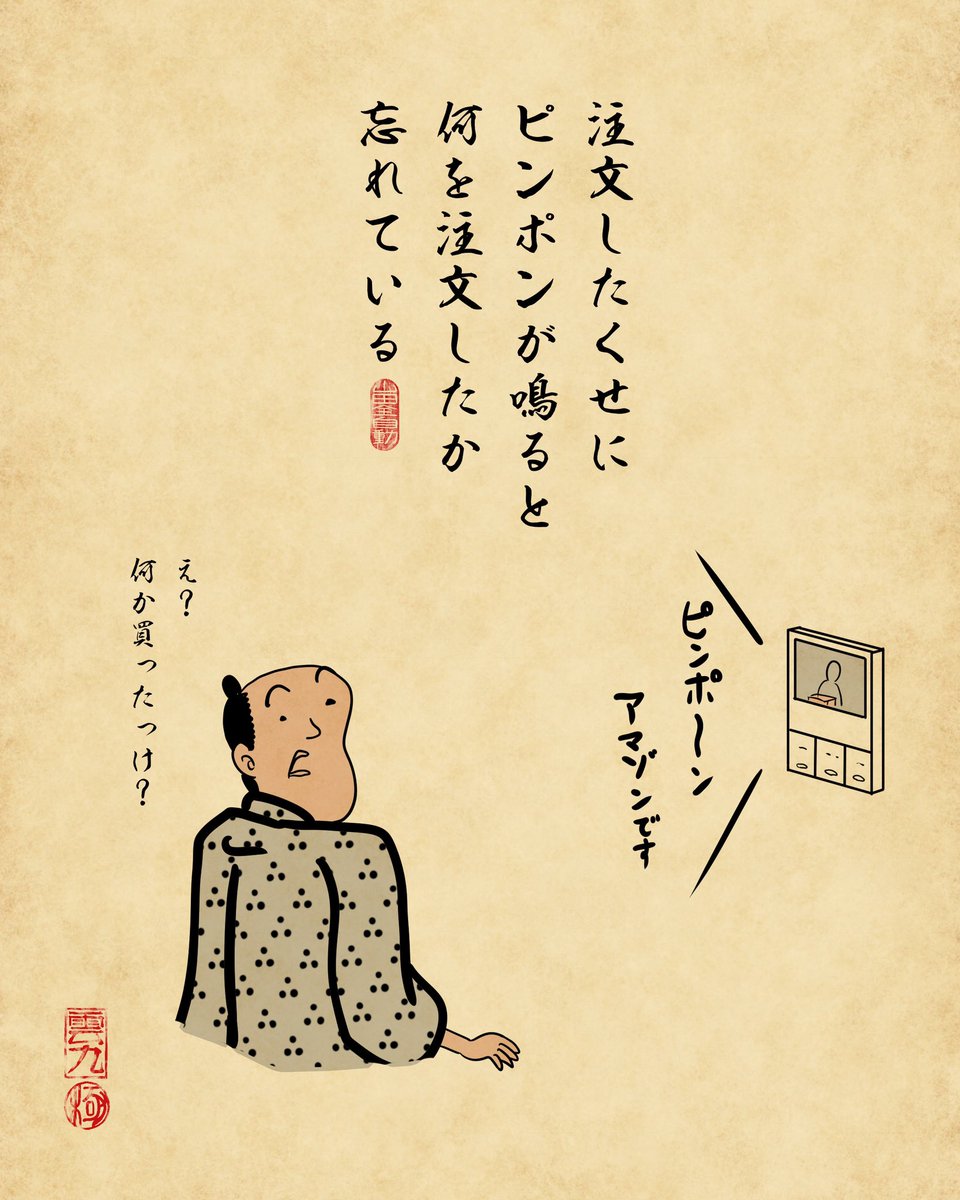 注文したくせに
ピンポンが鳴ると
何を注文したか
忘れている
ピンポ〜ン
アマゾンです
え?
何か買ったっけ?